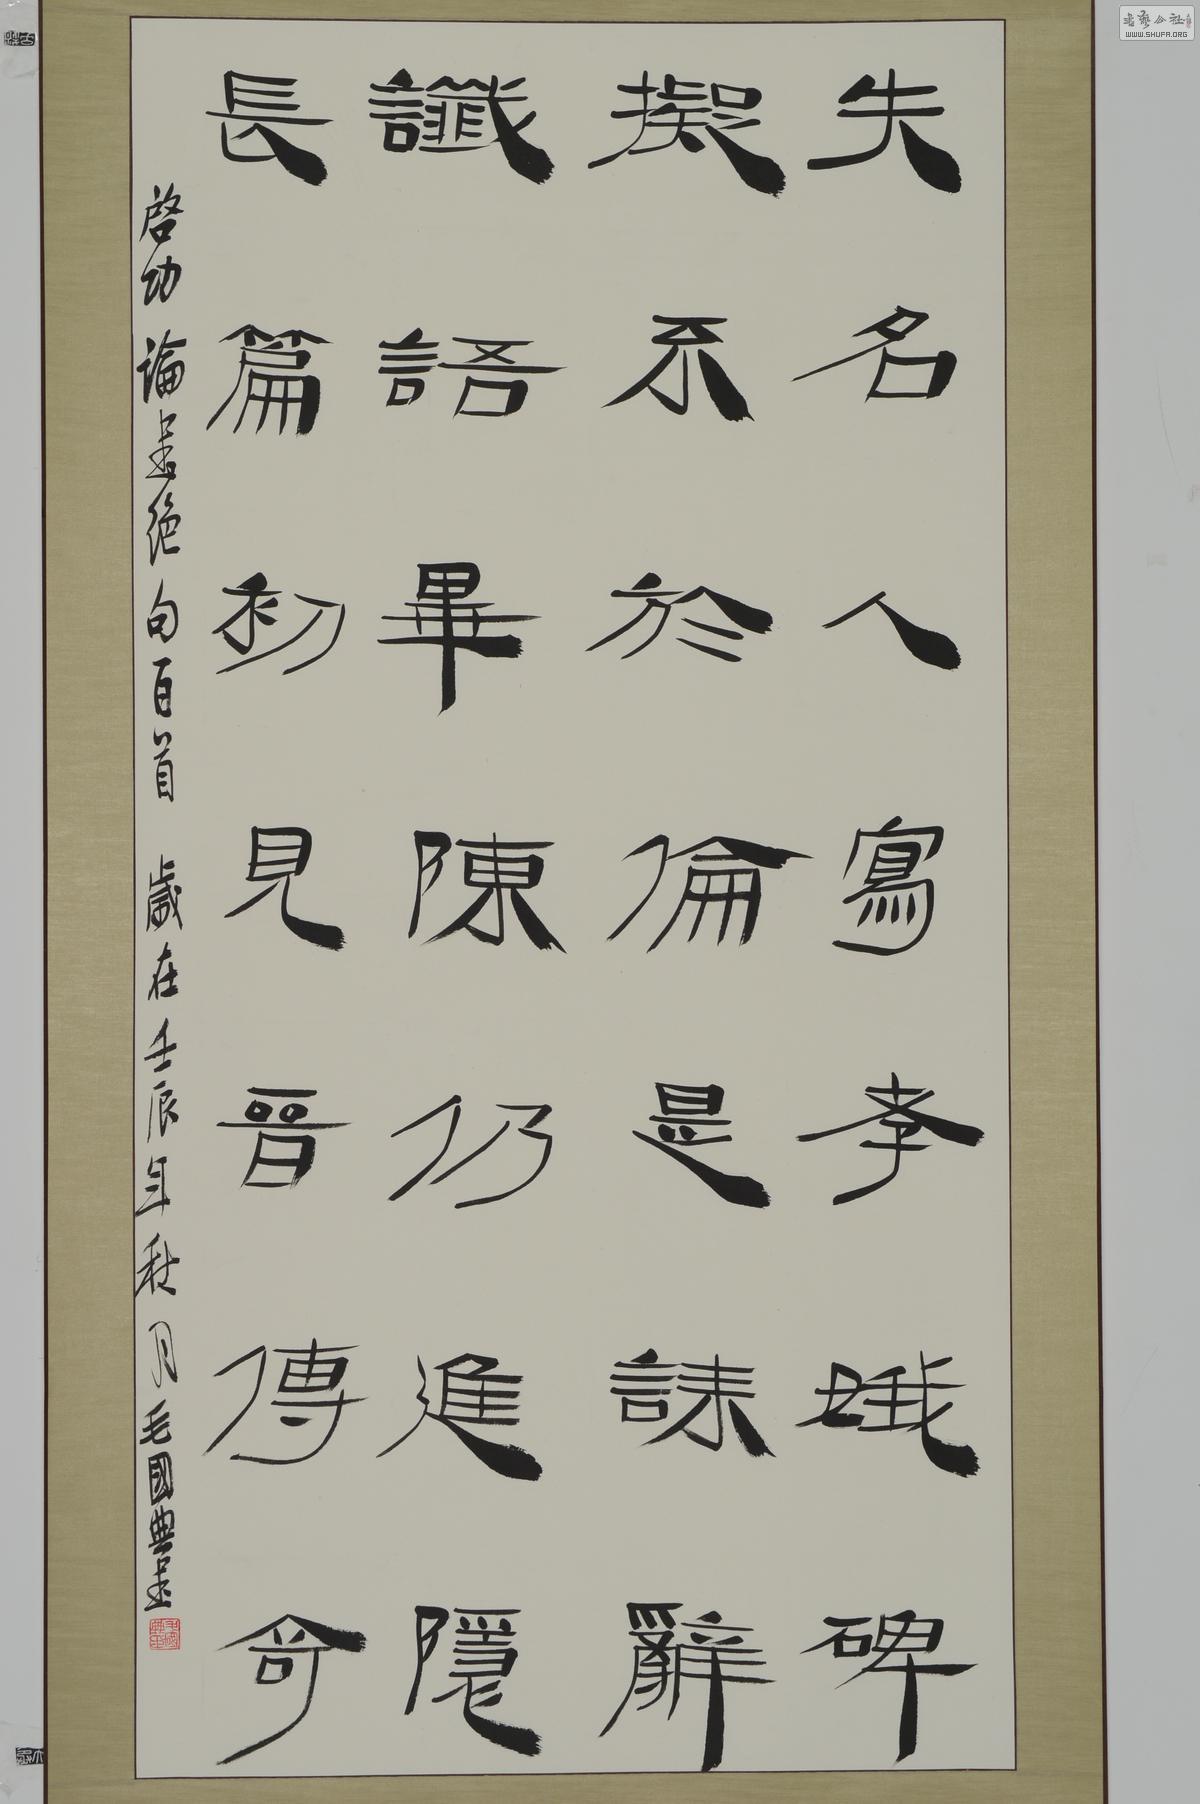 失名人寫孝娥碑
擬不於倫是誄辭
讖語畢陳仍進隱
長篇初見晉傳奇
啓功論書绝句百首 歲在壬辰年秋月毛國典書
WWW.SHUFA.ORG